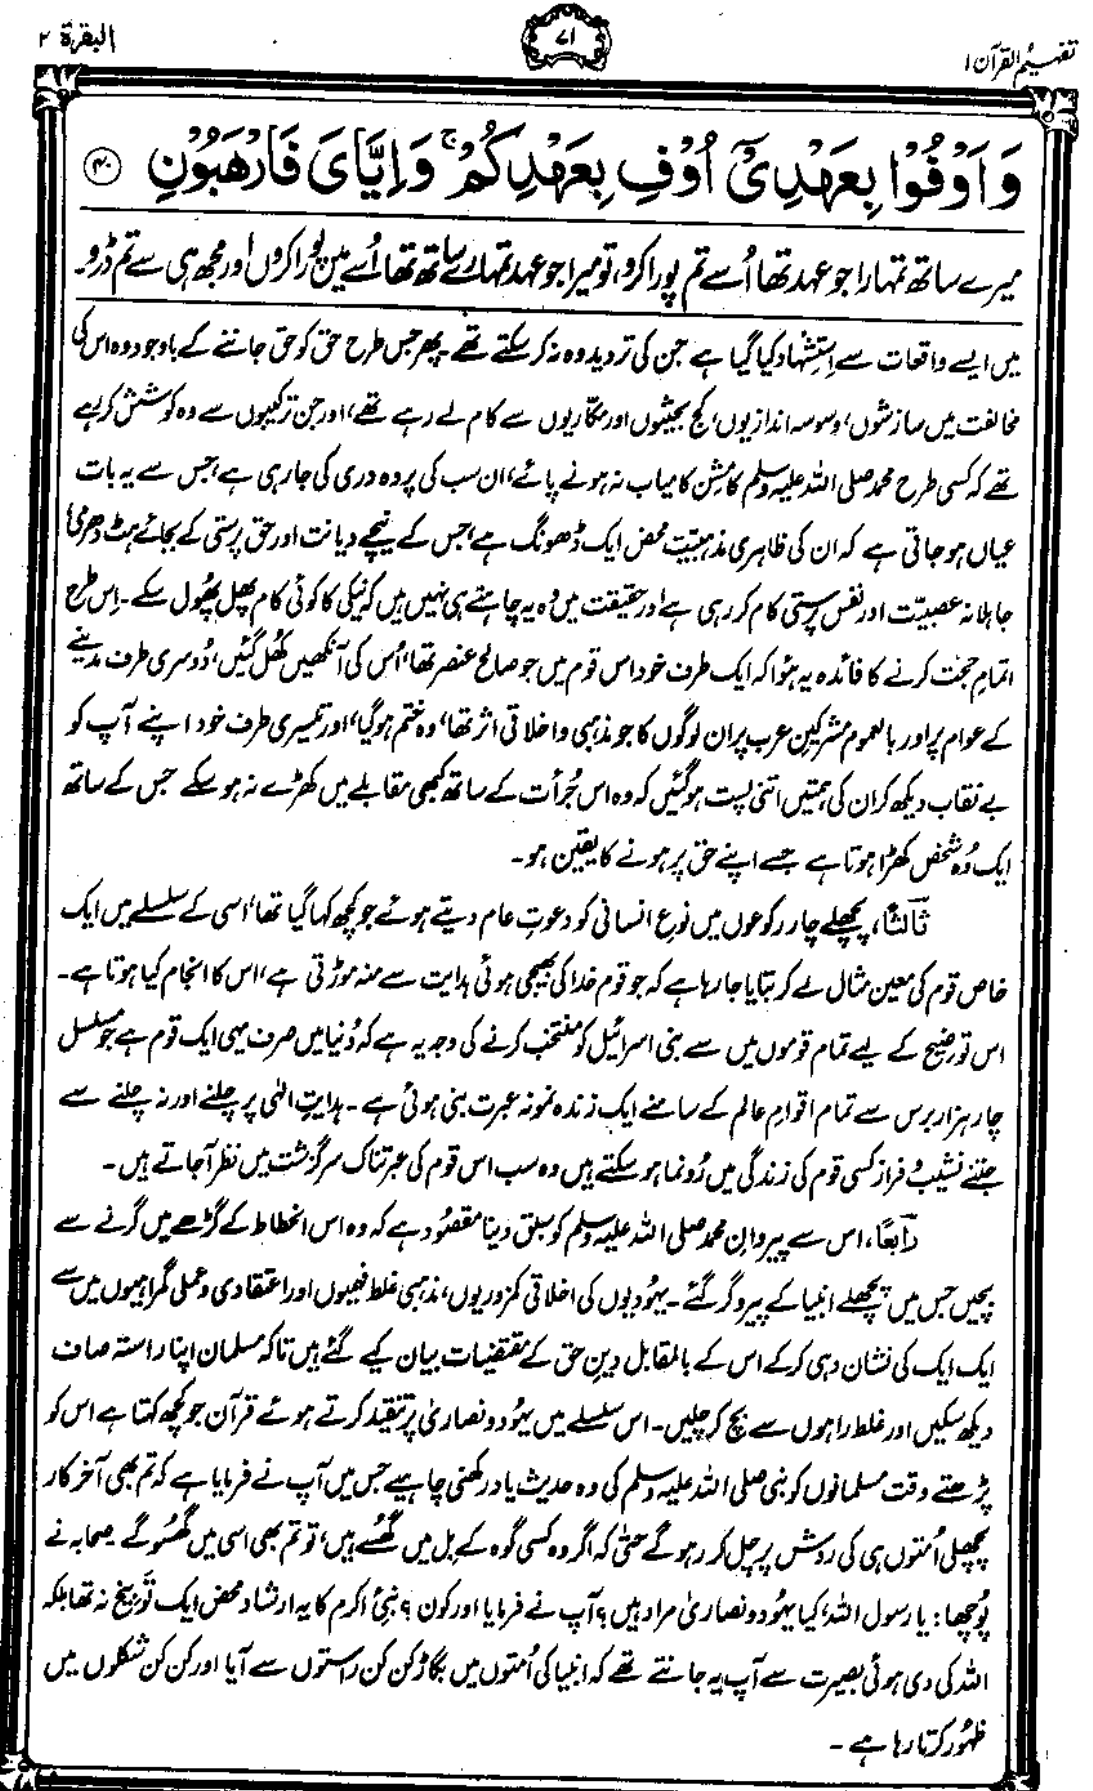 تفہیم القرآن ۱
۷۱
البقرۃ ۲
وَاَوْفُوْا بِعَهْدِىْٓ اُوْفِ بِعَهْدِكُمْ ۚ وَاِيَّاىَ فَارْهَبُوْنِ ﴿۴۰﴾
میرے ساتھ تمہارا جو عہد تھا اُسے تم پورا کرو، تو میرا جو عہد تمہارے ساتھ تھا اُسے میں پُورا کروں اور مجھ ہی سے تم ڈرو۔
میں ایسے واقعات سے اِستِشہاد کیا گیا ہے جن کی تردید وہ نہ کر سکتے تھے۔ پھر جس طرح حق کو حق جاننے کے باوجود وہ اس کی
مخالفت میں سازشوں، وسوسہ اندازیوں، کج بحثیوں اور مکّاریوں سے کام لے رہے تھے، اور جن ترکیبوں سے وہ کوشش کر رہے
تھے کہ کسی طرح محمد صلی اللہ علیہ وسلم کا مِشن کامیاب نہ ہونے پائے، ان سب کی پردہ دری کی جا رہی ہے، جس سے یہ بات
عیاں ہو جاتی ہے کہ ان کی ظاہری مذہبیّت محض ایک ڈھونگ ہے، جس کے نیچے دیانت اور حق پرستی کے بجائے ہٹ دھرمی،
جاہلانہ عصبیّت اور نفس پرستی کام کر رہی ہے، اور حقیقت میں وُہ یہ چاہتے ہی نہیں ہیں کہ نیکی کا کوئی کام پھل پھُول سکے۔ اِس طرح
اتمامِ حجت کرنے کا فائدہ یہ ہُوا کہ ایک طرف خود اس قوم میں جو صالح عنصر تھا، اُس کی آنکھیں کھُل گئیں، دُوسری طرف مدینے
کے عوام پر اور بالعموم مشرکینِ عرب پر ان لوگوں کا جو مذہبی و اخلاقی اثر تھا، وہ ختم ہو گیا، اور تیسری طرف خود اپنے آپ کو
بے نقاب دیکھ کر ان کی ہمتیں اتنی پست ہو گئیں کہ وہ اس جُرأت کے ساتھ کبھی مقابلے میں کھڑے نہ ہو سکے جس کے ساتھ
ایک وُہ شخص کھڑا ہوتا ہے جسے اپنے حق پر ہونے کا یقین ہو۔
ثالثًا، پچھلے چار رکوعوں میں نوعِ انسانی کو دعوتِ عام دیتے ہوئے جو کچھ کہا گیا تھا، اسی کے سلسلے میں ایک
خاص قوم کی معین مثال لے کر بتایا جا رہا ہے کہ جو قوم خدا کی بھیجی ہوئی ہدایت سے منہ موڑتی ہے، اس کا انجام کیا ہوتا ہے۔
اس توضیح کے لیے تمام قوموں میں سے بنی اسرائیل کو منتخب کرنے کی وجہ یہ ہے کہ دُنیا میں صرف یہی ایک قوم ہے جو مسلسل
چار ہزار برس سے تمام اقوامِ عالم کے سامنے ایک زندہ نمونہ عبرت بنی ہوئی ہے۔ ہدایتِ الٰہی پر چلنے اور نہ چلنے سے
جتنے نشیب و فراز کسی قوم کی زندگی میں رُونما ہو سکتے ہیں وہ سب اس قوم کی عبرتناک سرگزشت میں نظر آجاتے ہیں۔
رابعًا، اس سے پیروانِ محمد صلی اللہ علیہ وسلم کو سبق دینا مقصُود ہے کہ وہ اس انحطاط کے گڑھے میں گرنے سے
بچیں جس میں پچھلے انبیا کے پیرو گر گئے۔ یہُودیوں کی اخلاقی کمزوریوں، مذہبی غلط فہمیوں اور اعتقادی و عملی گمراہیوں میں سے
ایک ایک کی نشان دہی کر کے اس کے بالمقابل دینِ حق کے مقتضیات بیان کیے گئے ہیں تاکہ مسلمان اپنا راستہ صاف
دیکھ سکیں اور غلط راہوں سے بچ کر چلیں۔ اس سلسلے میں یہُود و نصاریٰ پر تنقید کرتے ہوئے قرآن جو کچھ کہتا ہے اس کو
پڑھتے وقت مسلمانوں کو نبی صلی اللہ علیہ وسلم کی وہ حدیث یاد رکھنی چاہیے جس میں آپ نے فرمایا ہے کہ تم بھی آخر کار
پچھلی اُمتوں ہی کی روش پر چل کر رہو گے حتیٰ کہ اگر وہ کسی گوہ کے بل میں گھُسے ہیں، تو تم بھی اسی میں گھُسو گے۔ صحابہ نے
پُوچھا: یا رسول اللہ، کیا یہُود و نصاریٰ مراد ہیں؟ آپ نے فرمایا اور کون؟ نبیِ اکرم کا یہ ارشاد محض ایک تَوبِیخ نہ تھا بلکہ
اللہ کی دی ہوئی بصیرت سے آپ یہ جانتے تھے کہ انبیا کی اُمتوں میں بگاڑ کن کن راستوں سے آیا اور کن کن شکلوں میں
ظہُور کرتا رہا ہے۔